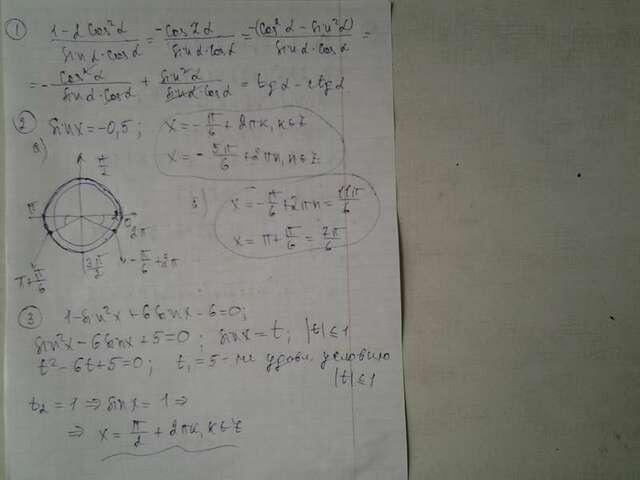 ① (1-2cos²α)/(sinα·cosα) = (-cos2α)/(sinα·cosα) = (-(cos²α - sin²α))/(sinα·cosα) =
= - cos²α/(sinα·cosα) + sin²α/(sinα·cosα) = tgα - ctgα
② sinx = -0,5; x = -π/6 + 2πk, k∈Z
а) x = -5π/6 + 2πn, n∈Z
π/2
π 0 2π
3π/2
π+π/6 -π/6+2π
x = -π/6 + 2πn = 11π/6
x = π + π/6 = 7π/6
③ 1-sin²x+6sinx-6=0;
sin²x-6sinx+5=0; sinx=t; |t|≤1
t²-6t+5=0; t₁=5 - не удовл. условию
|t|≤1
t₂=1 ⇒ sinx=1 ⇒
⇒ x = π/2 + 2πk, k∈Z